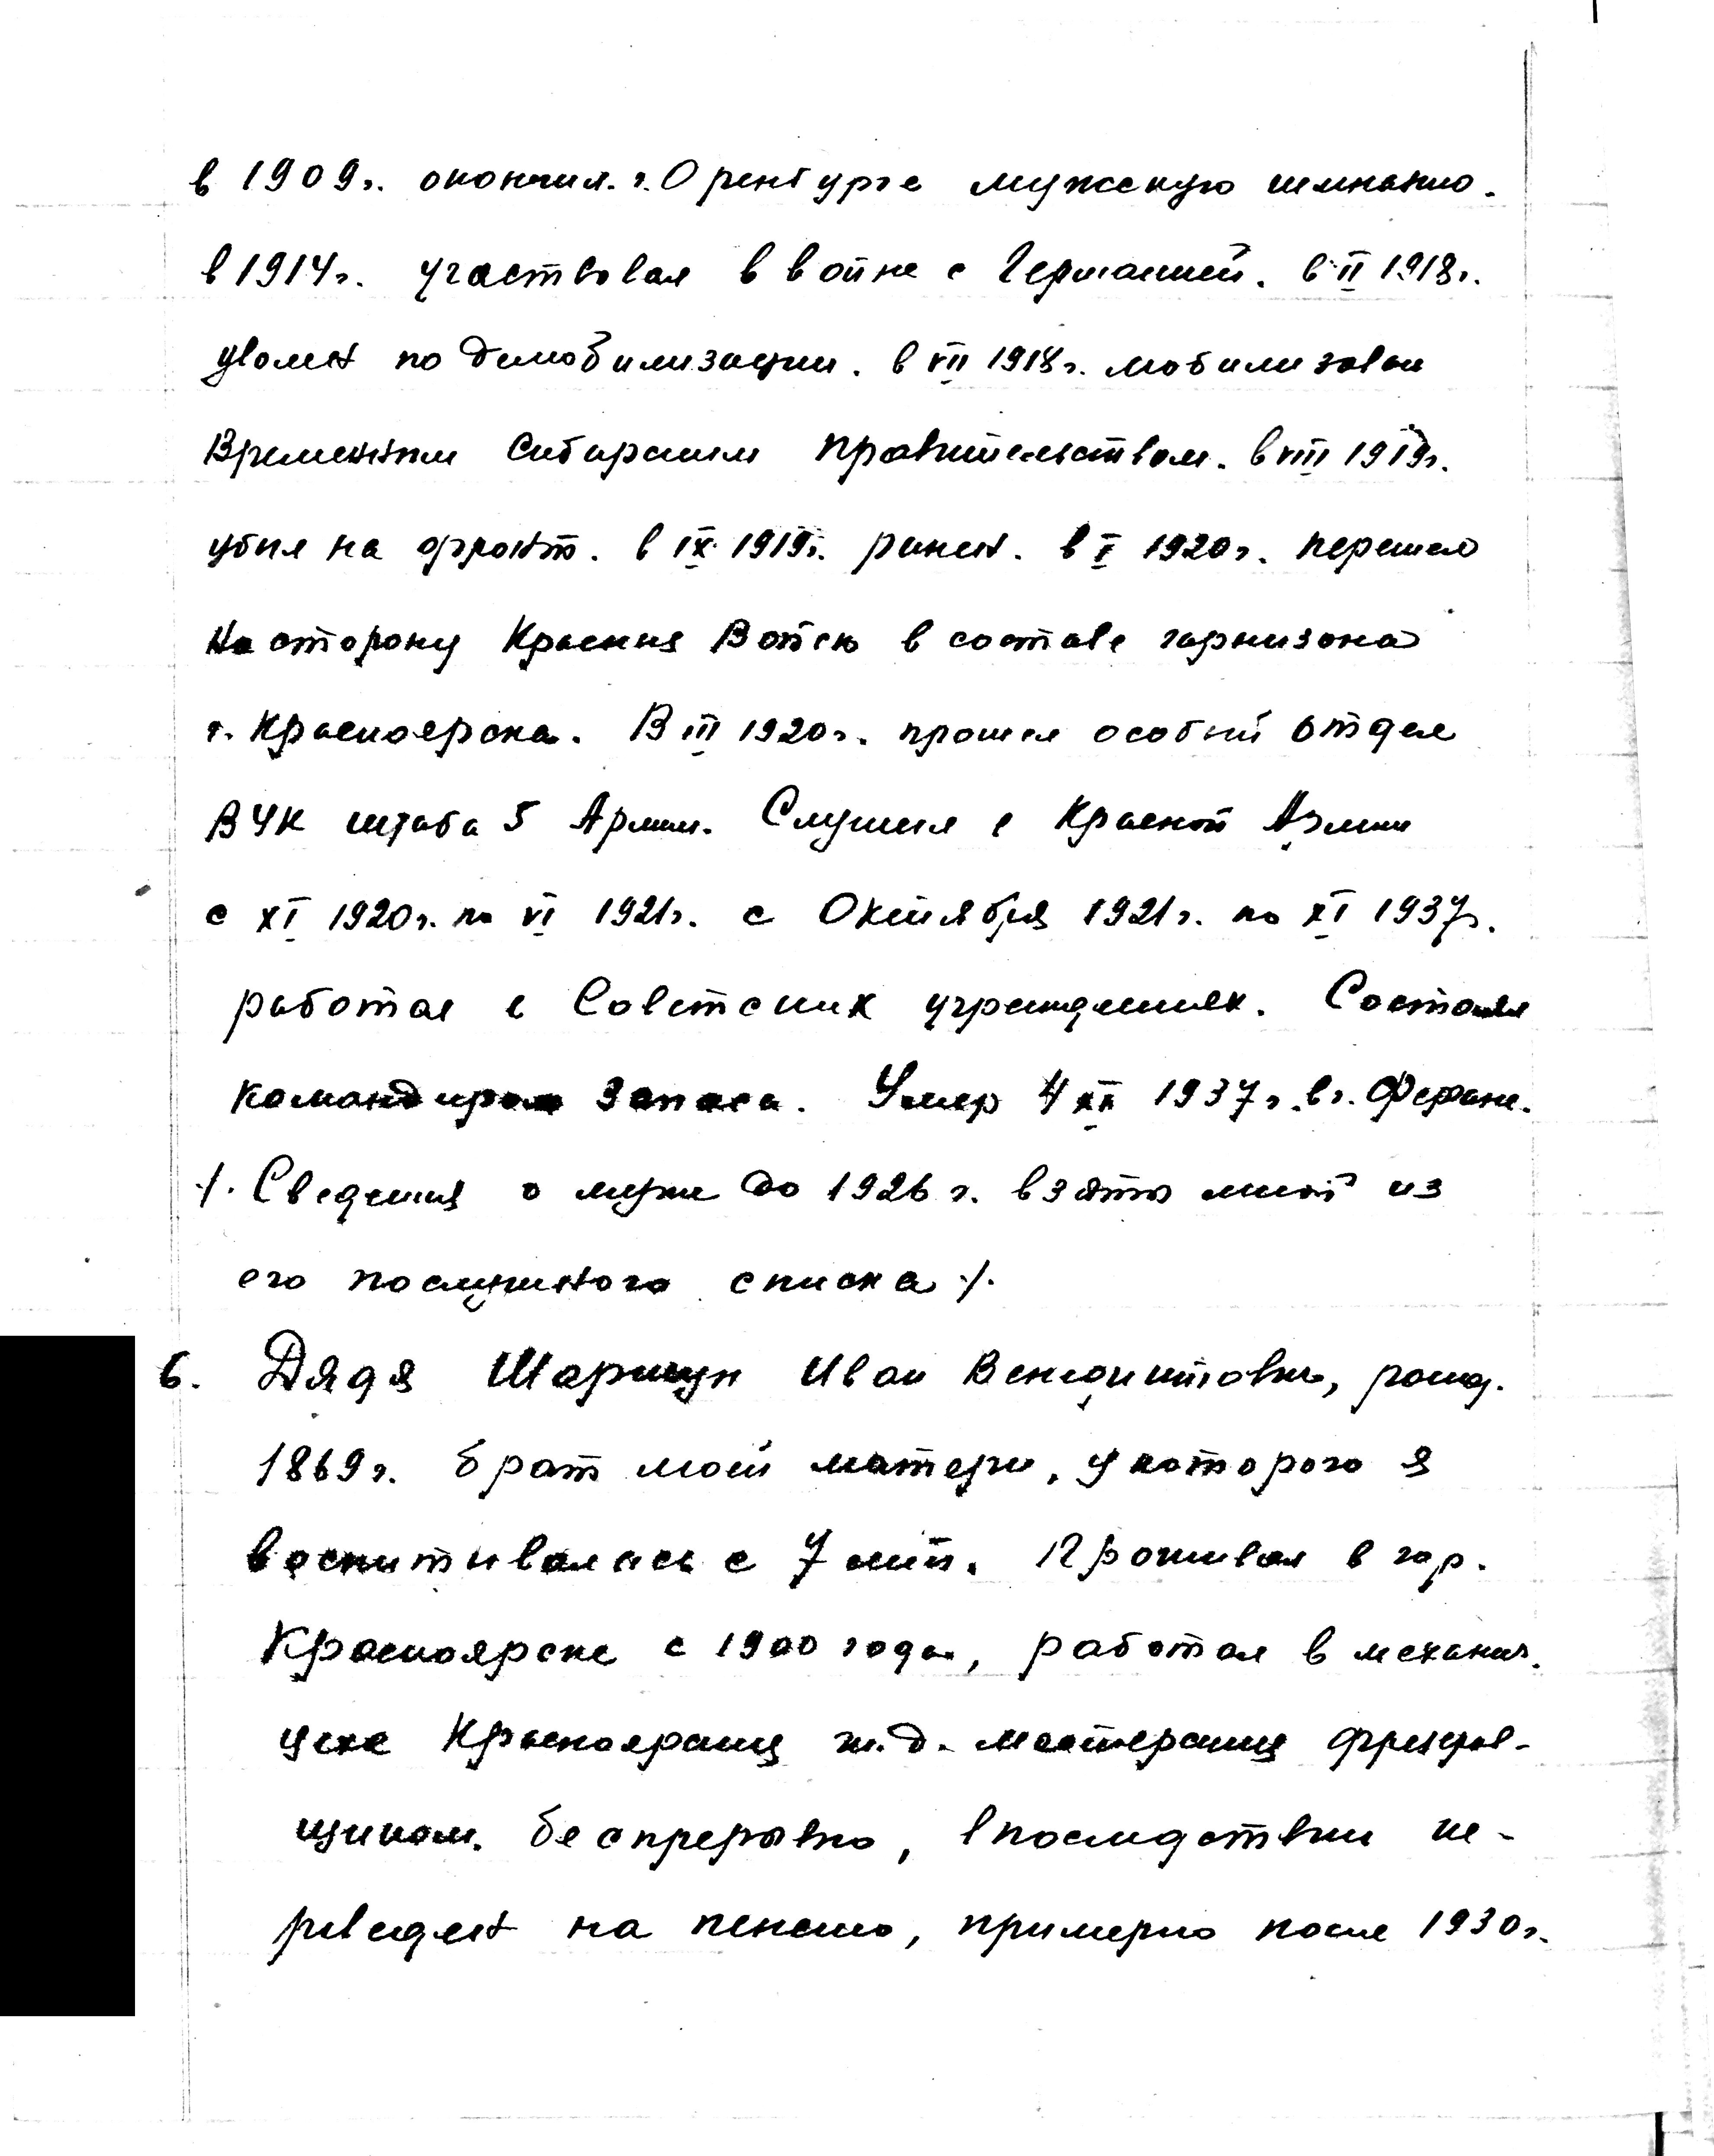 в 1909г. окончил. г. Оренбурге мужскую гимназию.
в 1914г. участвовал в войне с Германией. в II 1918г.
уволен по демобилизации. в VII 1918г. мобилизован
Временным Сибирским правительством. в VIII 1919г.
убыл на фронт. в IX 1919г. ранен. в I 1920г. перешел
на сторону Красных Войск в составе гарнизона
г. Красноярска. В III 1920г. прошел особый отдел
ВЧК штаба 5 Армии. Служил в Красной Армии
с XI 1920г. по VI 1921г. с Октября 1921г. по XI 1937г.
работал в Советских учреждениях. Состоял
командиром запаса. Умер 4 1937г. в г. Фергане.
./. Сведения о муже до 1926 г. взяты мной из
его послужного списка ./.
6. Дядя Иван Венедиктович, рожд.
1869г. брат моей матери, у которого я
воспитывалась с 7 лет. Проживал в гор.
Красноярске с 1900 года, работал в механич.
цехе Красноярских ж.д. мастерских фрезеров-
щиком. беспрерывно, впоследствии пе-
реведен на пенсию, примерно после 1930г.